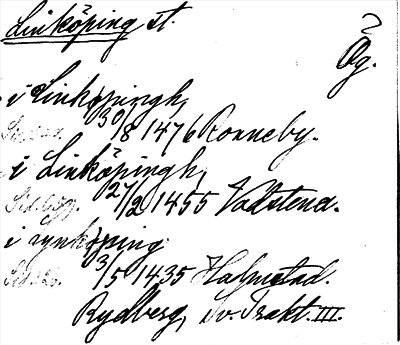 Linköping st.
Ög.
i Linköpingh,
30/8 1476 Ronneby.
i Linköpingh,
27/2 1455 Vadstena.
i lynköping
3/5 1435 Halmstad.
Rydberg, Sv. Trakt. III.